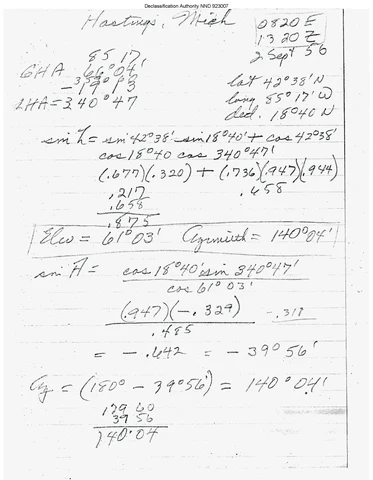 Declassification Authority NND 923007
Hastings, Mich
0820 E
1320 Z
2 Sept 56
85 17'
GHA 66°04'
- 19 13
359 60
LHA = 340°47
lat 42°38'N
long 85°17'W
decl. 18°40 N
sin h = sin 42°38' sin 18°40' + cos 42°38'
cos 18°40 cos 340°47'
(.677)(.320) + (.736)(.947)(.944)
.217
.658
.658
.875
Elev = 61°03' Azimuth = 140°04'
sin A = cos 18°40' sin 340°47'
cos 61°03'
(.947)(-.329)
.485
= -.642 = -39°56'
Az = (180° - 39°56') = 140°04'
179 60
39 56
140°04